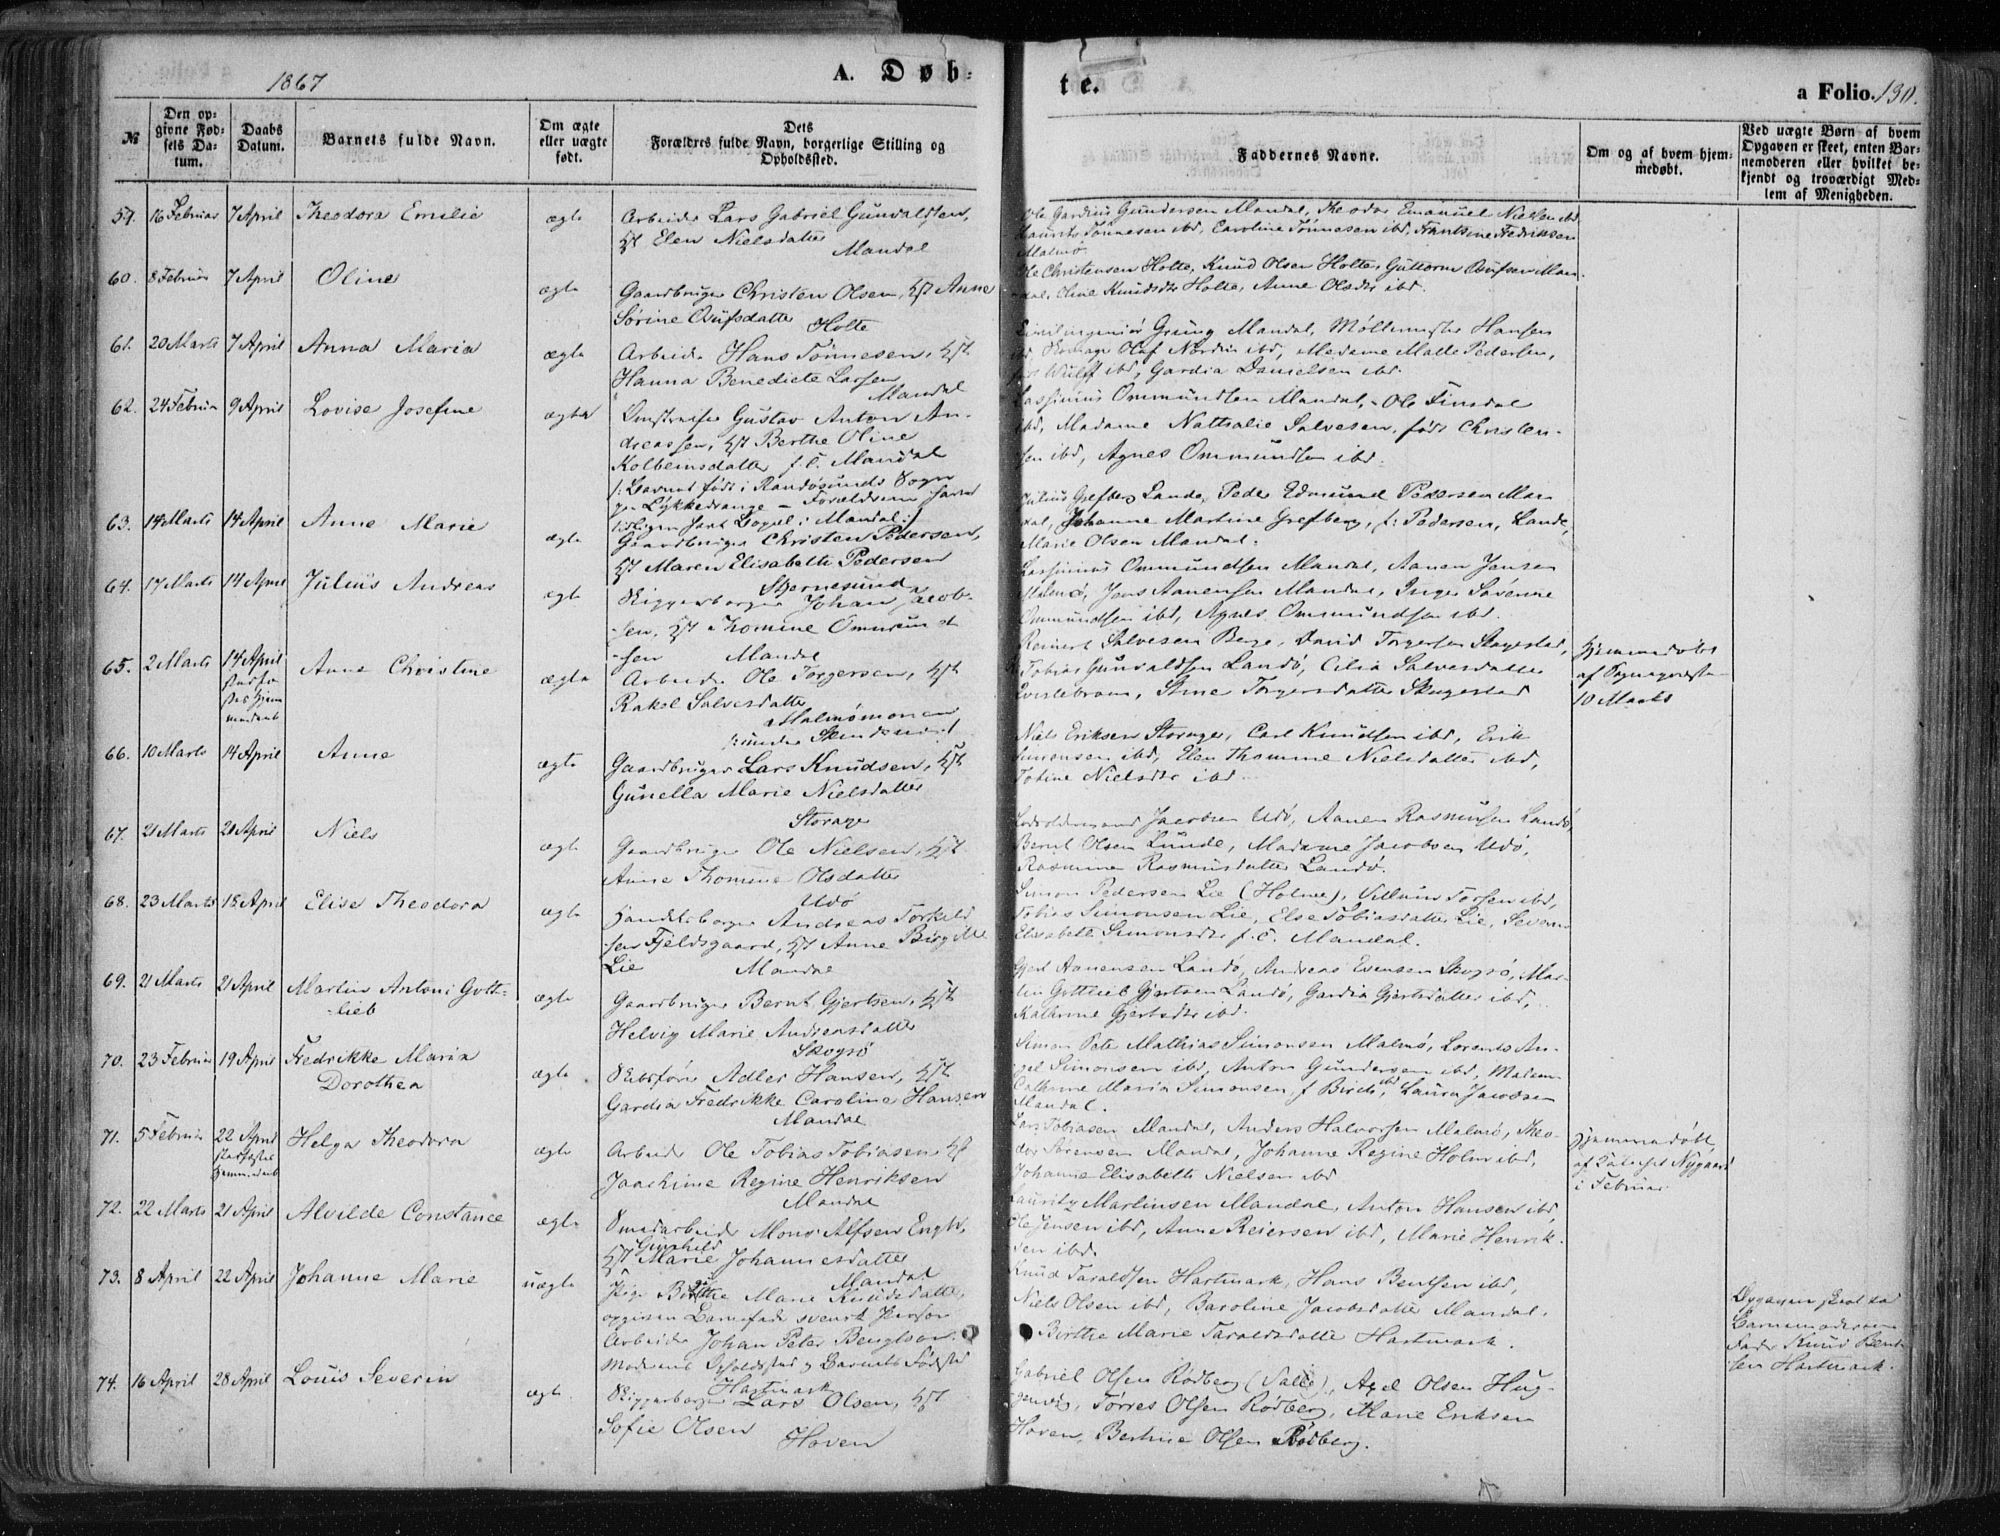 1867
A. Døb-
te.
a Folio. 130.
№
Den op-
givne Fød-
sels Da-
tum.
Daabs
Datum.
Barnets fulde Navn.
Om ægte
eller uægte
født.
Dets
Forældres fulde Navn, borgerlige Stilling og
Opholdssted.
Faddernes Navne.
Om og af hvem hjem-
medøbt.
Ved uægte Børn af hvem
Opgaven er skeet, enten Bar-
nemoderen eller hvilket be-
kjendt og troværdigt Med-
lem af Menigheden.
59. 16 Februar 7 April Theodora Emilie ægte
Arbeider Lars Gabriel Gunvaldsen,
Hst Elen Nielsdatter
Mandal
Ole Gardius Gundersen Mandal, Theodor Emanuel Nielsen ibd
Laurits Tønnesen ibd, Caroline Tønnesen ibd, Frantsine Fredriksen
Malmø
60. 8 Februar 7 April Oline ægte
Gaardbruger Christen Olsen, Hst Anne
Sørine Osufsdatter
Holte
Ole Christensen Holte, Knud Olsen Holte, Guttorm Osufsen Man-
dal, Oline Knudsdtr Holte, Anne Olsdtr ibd.
61. 20 Marts 7 April Anna Maria ægte
Arbeider Hans Tønnesen, Hst
Hanna Benedicte Larsen
Mandal
Civilingeniør Grung Mandal, Møllemester Hansen
ibd, Skomager Olaf Nordin ibd, Madame Malle Pedersen,
født Wulff ibd, Gardia Danielsen ibd.
62. 24 Februar 9 April Lovise Josefine ægte
Gustav Anton An-
dreassen, Hst Berthe Oline
Kolbeinsdatter f. C. Mandal
/: Barnet født i Randøsunds Sogn
paa Lykkedrange - Forældrene have
Bopel i Mandal :/
Cassinius Ommundsen Mandal, Ole Finsdal
ibd, Madame Nathalie Salvesen, født Christen-
sen ibd, Agnes Ommundsen ibd.
63. 14 Marts 14 April Anne Marie ægte
Gaardbruger Christen Pedersen,
Hst Maren Elisabeth Pedersen
Skjernesund
Julius Grefberg Lande, Peder Edmund Pedersen Man-
dal, Johanne Martine Grefberg, f: Pedersen, Lande,
Marie Olsen Mandal.
64. 17 Marts 14 April Julius Andreas ægte
Skippersborger Johan Jacob-
sen, Hst Thomine Ommund-
sen Mandal
Cassinius Ommundsen Mandal, Aanen Jensen
Malmø, Jens Aanensen Mandal, Inger Sørenne
Ommundsen ibd, Agnes Ommundsen ibd.
65. 2 Marts 14 April
stadfæ-
stet hjem-
medaab
Anne Christine ægte
Arbeider Ole Torgersen, Hst
Rakel Salvesdatter
Malmømonen
Reinert Salvesen Berge, David Torgersen Skagestad,
Tobias Gunvaldsen Landø, Cilia Salvesdatter
Stine Torgersdatter Skagestad
Hjemmedøbt
af Sognepresten
10 Marts
66. 10 Marts 14 April Anne ægte
Gaardbruger Lars Knudsen, Hst
Gunella Marie Nielsdatter
Storage
Niels Eriksen Storage, Carl Knudsen ibd, Erik
Simonsen ibd, Elen Thomine Nielsdatter ibd,
Tobine Nielsdtr ibd.
67. 21 Marts 20 April Niels ægte
Gaardbruger Ole Nielsen, Hst
Anne Thomine Olsdatter
Udø
Jacobsen Udø, Aanen Rasmusen Landø,
Bernt Olsen Lunde, Madame Jacobsen Udø,
Rasmine Rasmusdatter Landø.
68. 23 Marts 18 April Elise Theodora ægte
Handelsborger Andreas Torkild-
sen Fjeldsgaard, Hst Anne Birgitte
Lie Mandal
Simon Pedersen Lie (Holme), Villum Torsen ibd,
Tobias Simonsen Lie, Else Tobiasdatter Lie, Severine
Elisabeth Simonsdtr f. C. Mandal.
69. 21 Marts 21 April Martin Antoni Gott-
lieb ægte
Gaardbruger Bernt Gjertsen, Hst
Helvig Marie Andreasdatter
Skogsø
Gjert Aanensen Landø, Andreas Evensen Skogsø, Mar-
tin Gottlieb Gjertsen Landø, Gardia Gjertsdatter ibd,
Kathrine Gjertsdtr ibd.
70. 23 Februar 19 April Fredrikke Maria
Dorothea ægte
Skibsfører Adler Hansen, Hst
Gardia Fredrikke Caroline Hansen
Mandal
Simon Peter Mathias Simonsen Malmø, Lorents An-
gel Simonsen ibd, Anton Gundersen ibd, Madam
Cathrine Maria Simonsen, f Birch ibd, Laura Jacobsen
Mandal.
71. 5 Februar 22 April
stadfæstet
hjemmedaab
Helga Theodora ægte
Arbeider Ole Tobias Tobiasen, Hst
Joachime Regine Henriksen
Mandal
Lars Tobiasen Mandal, Anders Halvorsen Malmø, Theo-
dor Sørensen Mandal, Johanne Regine Holm ibd,
Johanne Elisabeth Nielsen ibd
Hjemmedøbt
af Nygaard
i Februar
72. 22 Marts 21 April Alvilde Constance ægte
Smedarbeider Mons Alfsen Engh,
Hst Gunhild Marie Johannesdatter
Mandal
Lauritz Martinsen Mandal, Anton Hansen ibd,
Ole Jensen ibd, Anne Reiersen ibd, Marie Henrik-
sen ibd.
73. 8 April 22 April Johanne Marie uægte
Pige Berthe Marie Knudsdatter,
opgiven Barnefader svensk Person
Arbeider Johan Peter Bengtson.
Moderens Opholdssted og Barnets Fødested
Hartmark
Knud Taraldsen Hartmark, Hans Bentsen ibd,
Niels Olsen ibd, Baroline Jacobsdatter Mandal,
Birthe Marie Taraldsdatter Hartmark.
Opgaven skeet ved
Barnemoderens
Fader Knud Bent-
sen Hartmark.
74. 16 April 28 April Louis Severin ægte
Skipperborger Lars Olsen, Hst
Sofie Olsen
Hoven
Gabriel Olsen Rødberg (Valle), Axel Olsen Hug-
Tørres Olsen Rødberg, Marie Eriksen
Hoven, Bertine Olsen Rødberg.